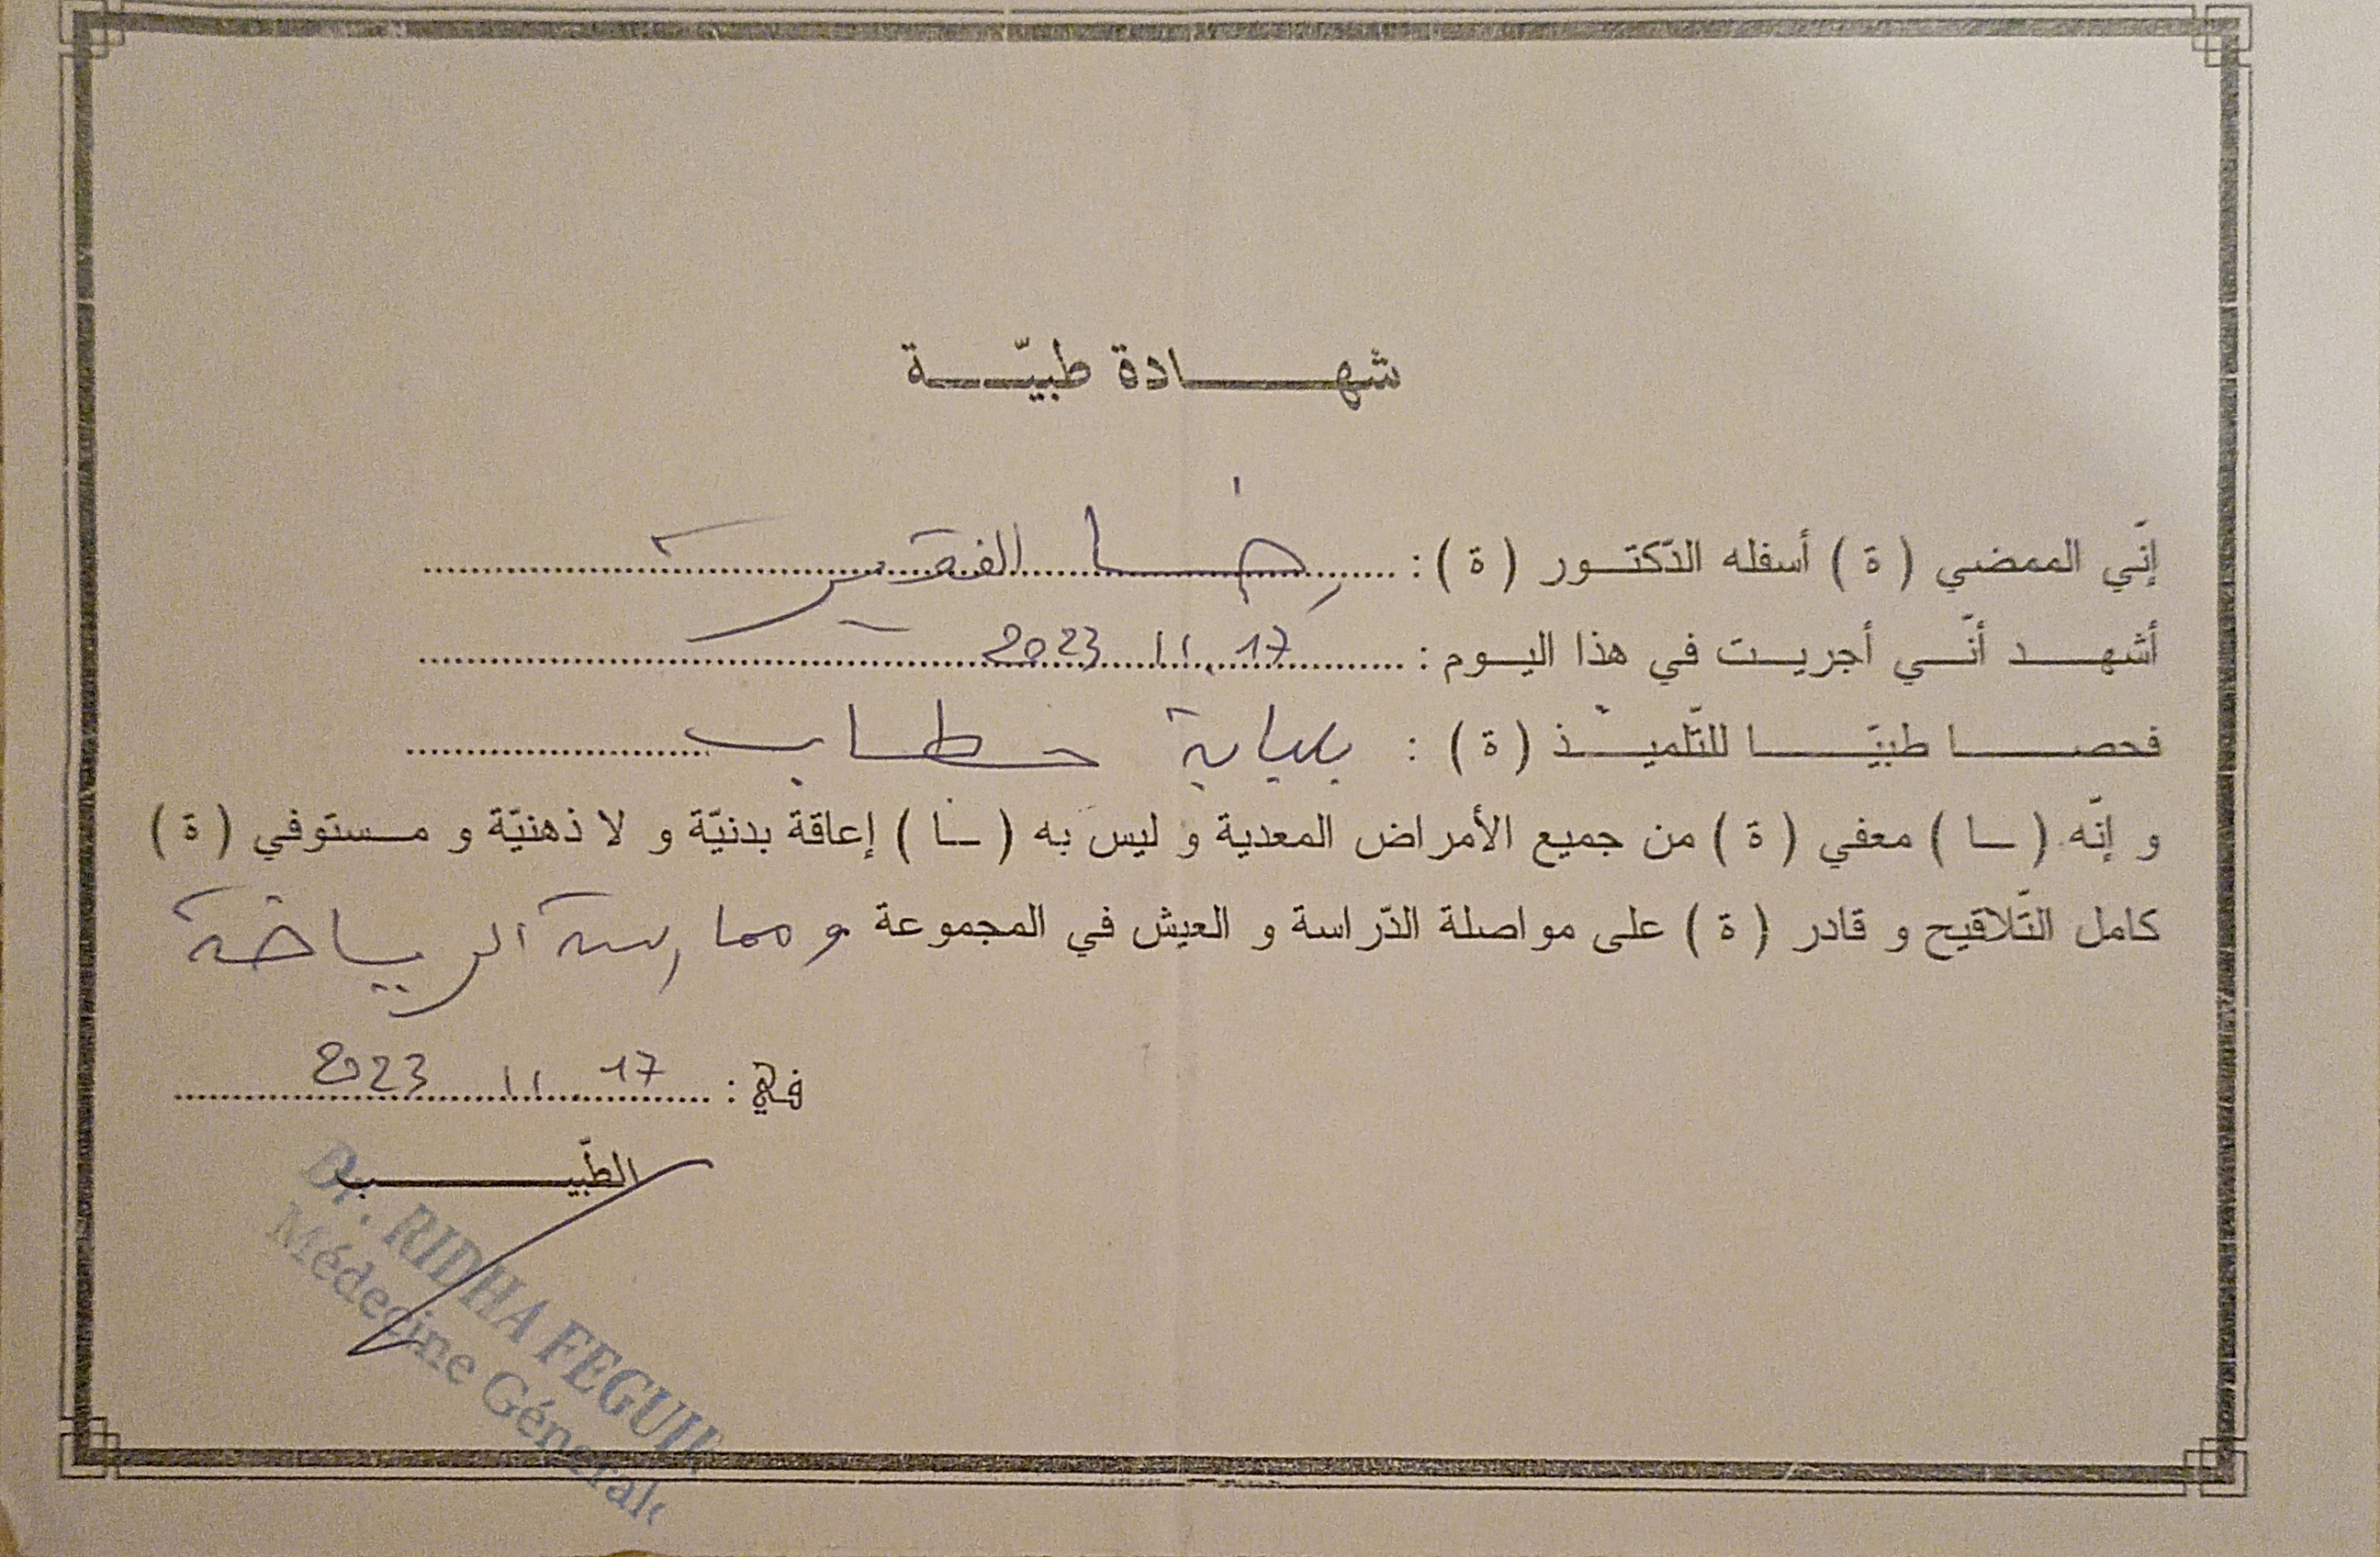 شهادة طبيّة
إنّي الممضي ( ة ) أسفله الدّكتور ( ة ) : رضا الفقير
أشهد أنّي أجريت في هذا اليوم : 17 11 2023
فحصا طبيّا للتّلميذ ( ة ) : حطاب
و إنّه ( ـا ) معفي ( ة ) من جميع الأمراض المعدية و ليس به ( ـا ) إعاقة بدنيّة و لا ذهنيّة و مستوفي ( ة )
كامل التّلاقيح و قادر ( ة ) على مواصلة الدّراسة و العيش في المجموعة و ممارسة الرياضة
في : 17 11 2023
الطّبيب
Dr. RIDHA FEGUIR
Médecine Générale